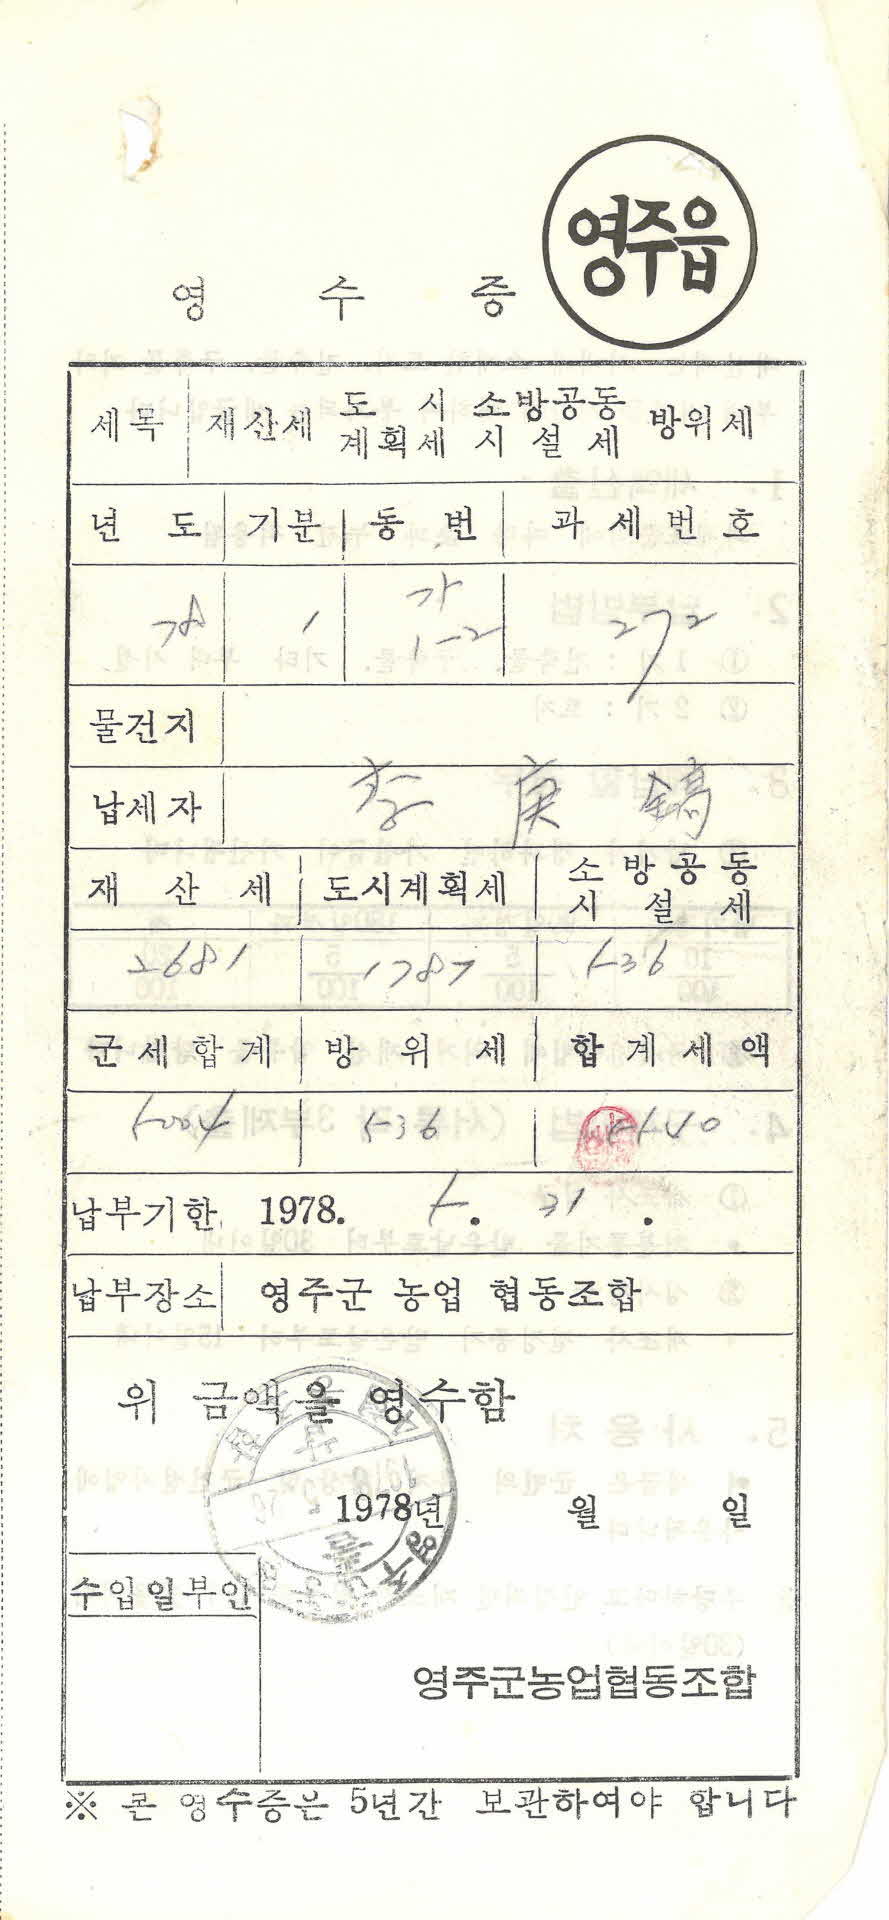 영주읍
영 수 증
세목 재산세 도시계획세 소방공동시설세 방위세
년도 기분 동번 과세번호
78 1 가 1-2 272
물건지
납세자 李庚鎬
재산세 도시계획세 소방공동시설세
2681 1787 536
군세합계 방위세 합계세액
5004 536 5540
납부기한 1978. 5. 31.
납부장소 영주군 농업 협동조합
위 금액을 영수함
1978년 월 일
수입일부인
영주군농업협동조합
※ 본 영수증은 5년간 보관하여야 합니다